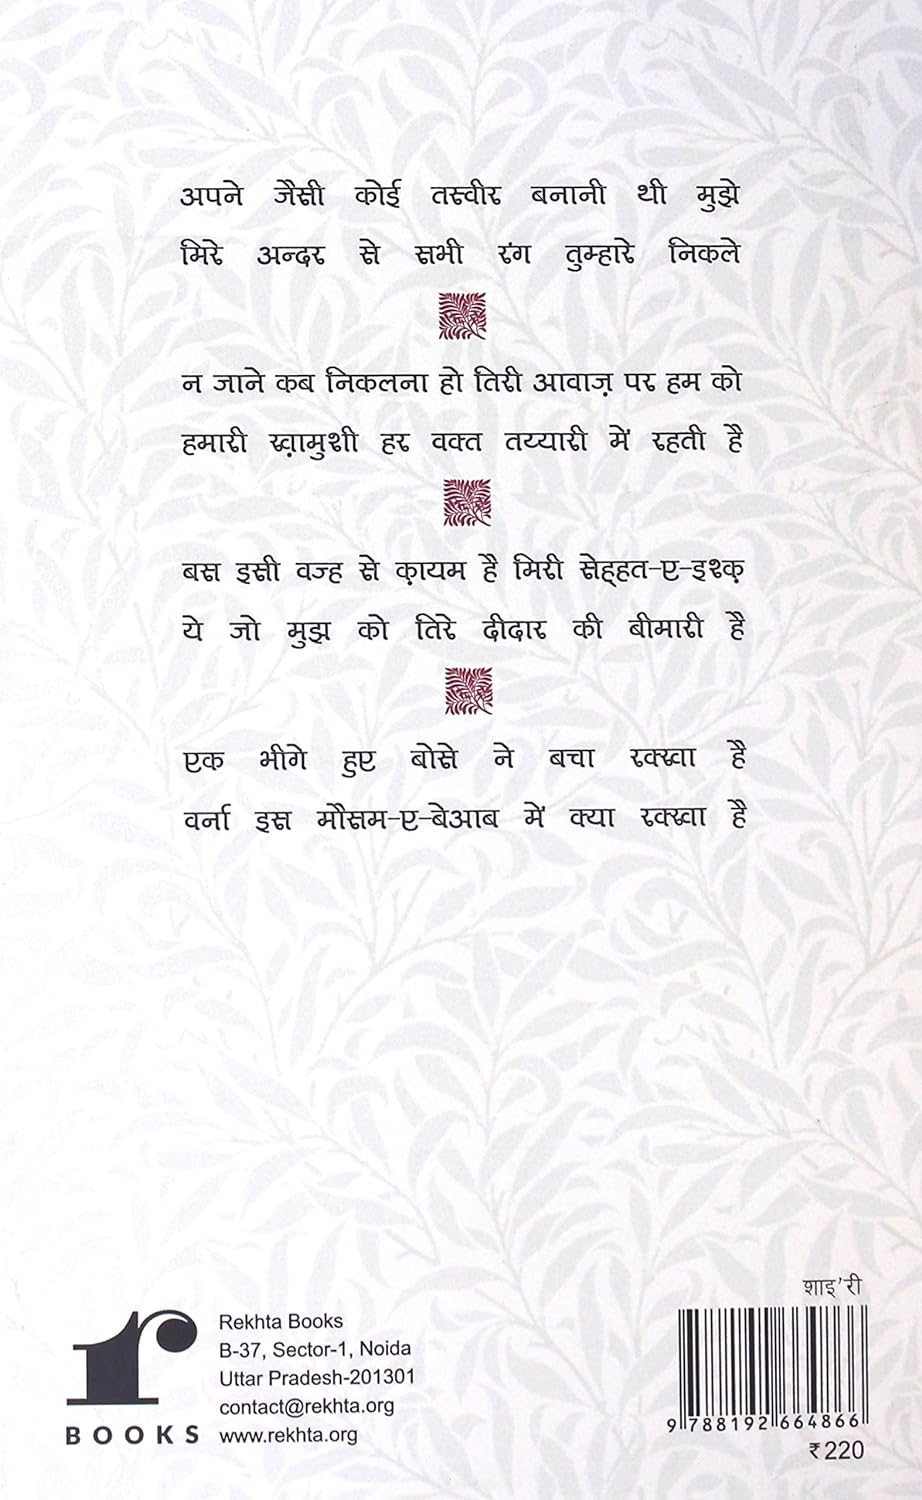 अपने जैसी कोई तस्वीर बनानी थी मुझे
मिरे अन्दर से सभी रंग तुम्हारे निकले
न जाने कब निकलना हो तिरी आवाज़ पर हम को
हमारी ख़ामुशी हर वक्त तय्यारी में रहती है
बस इसी वज्ह से क़ायम है मिरी सेह्हत-ए-इश्क़
ये जो मुझ को तिरे दीदार की बीमारी है
एक भीगे हुए बोसे ने बचा रक्खा है
वर्ना इस मौसम-ए-बेआब में क्या रक्खा है
r
BOOKS
Rekhta Books
B-37, Sector-1, Noida
Uttar Pradesh-201301
contact@rekhta.org
www.rekhta.org
शाइ'री
9 788192 664866
₹ 220